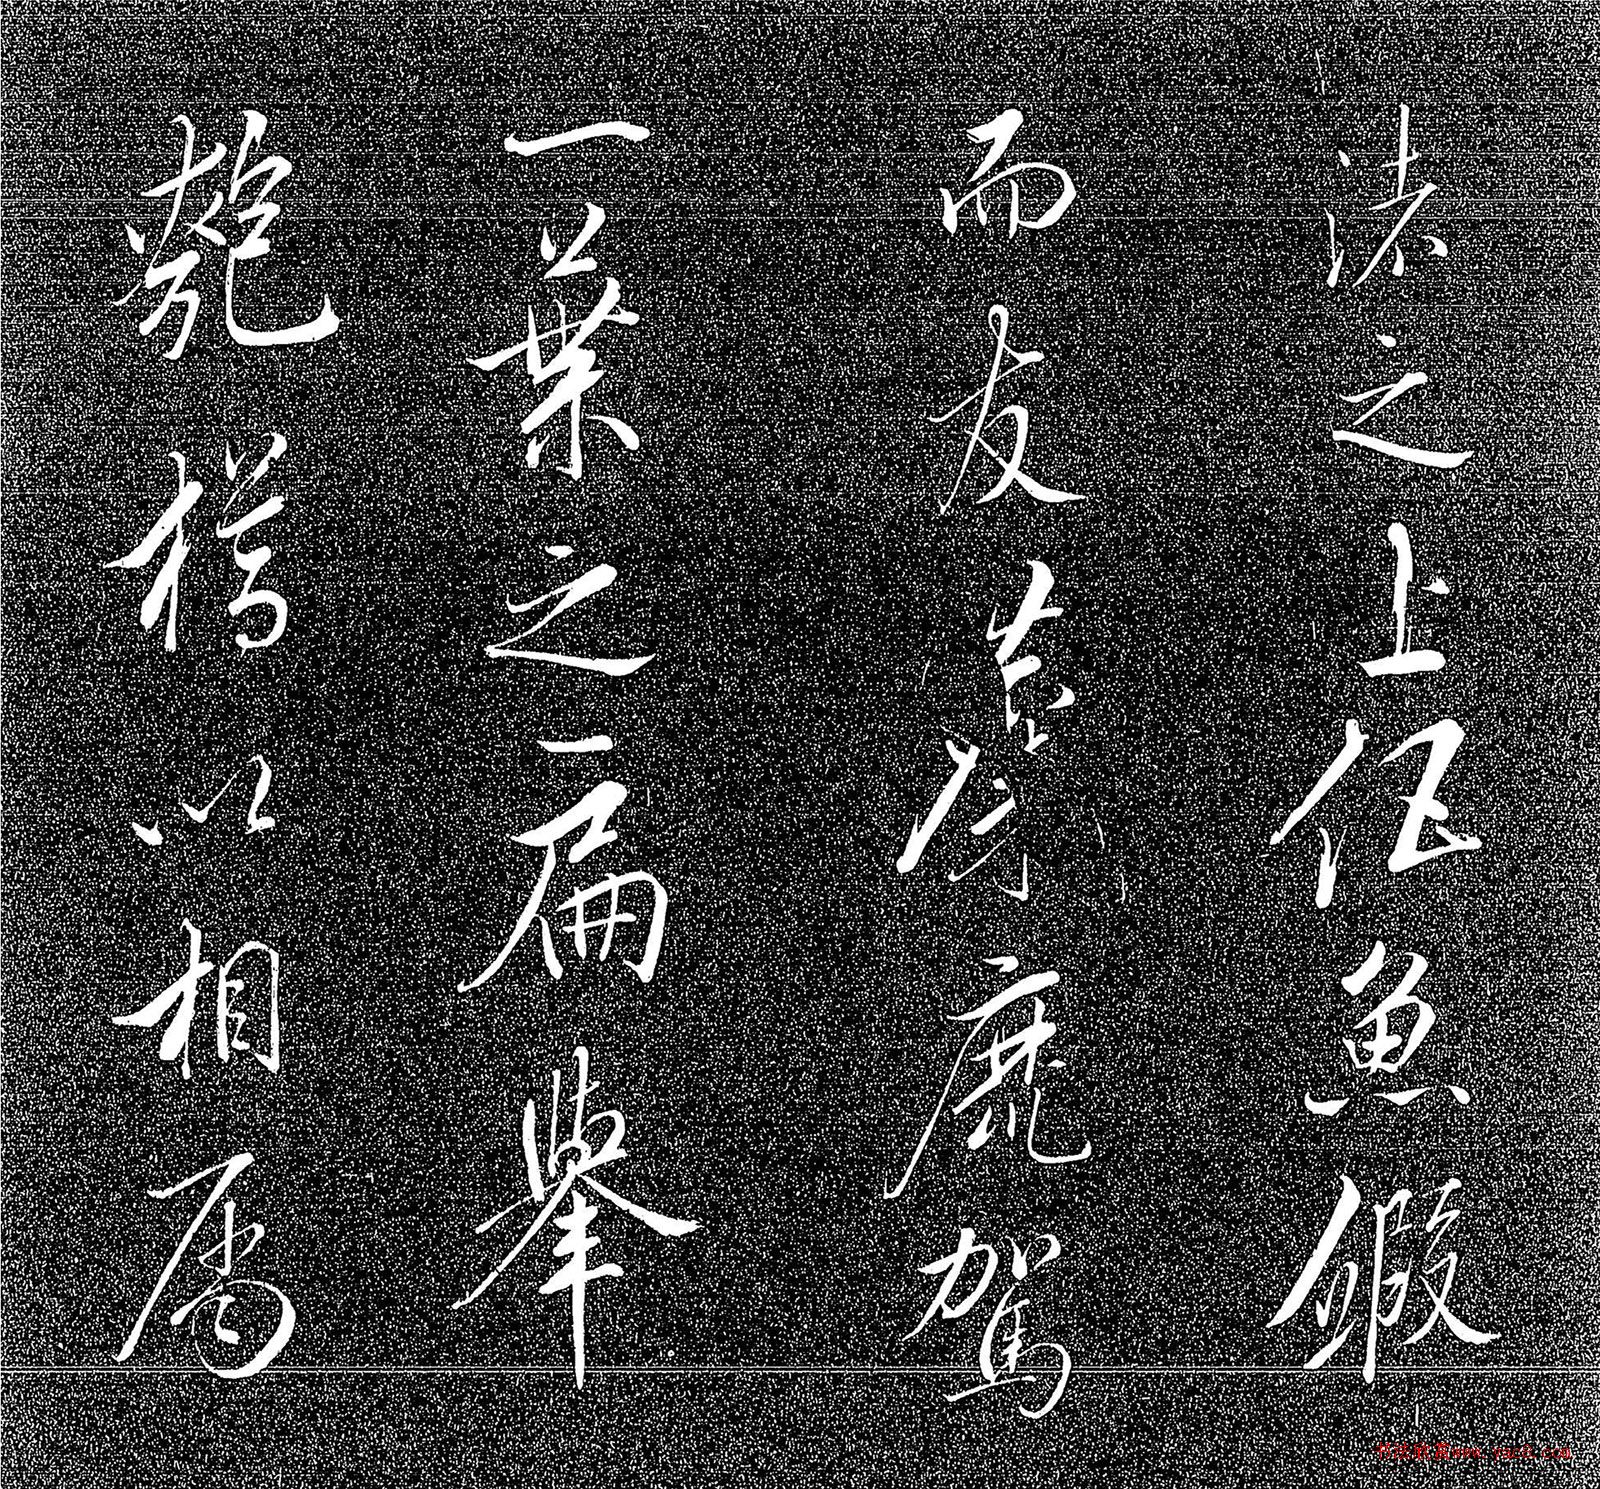 渚之上侶魚鰕
而友麋鹿駕
一葉之扁舉
匏樽以相屬
书法欣赏www.yac8.com